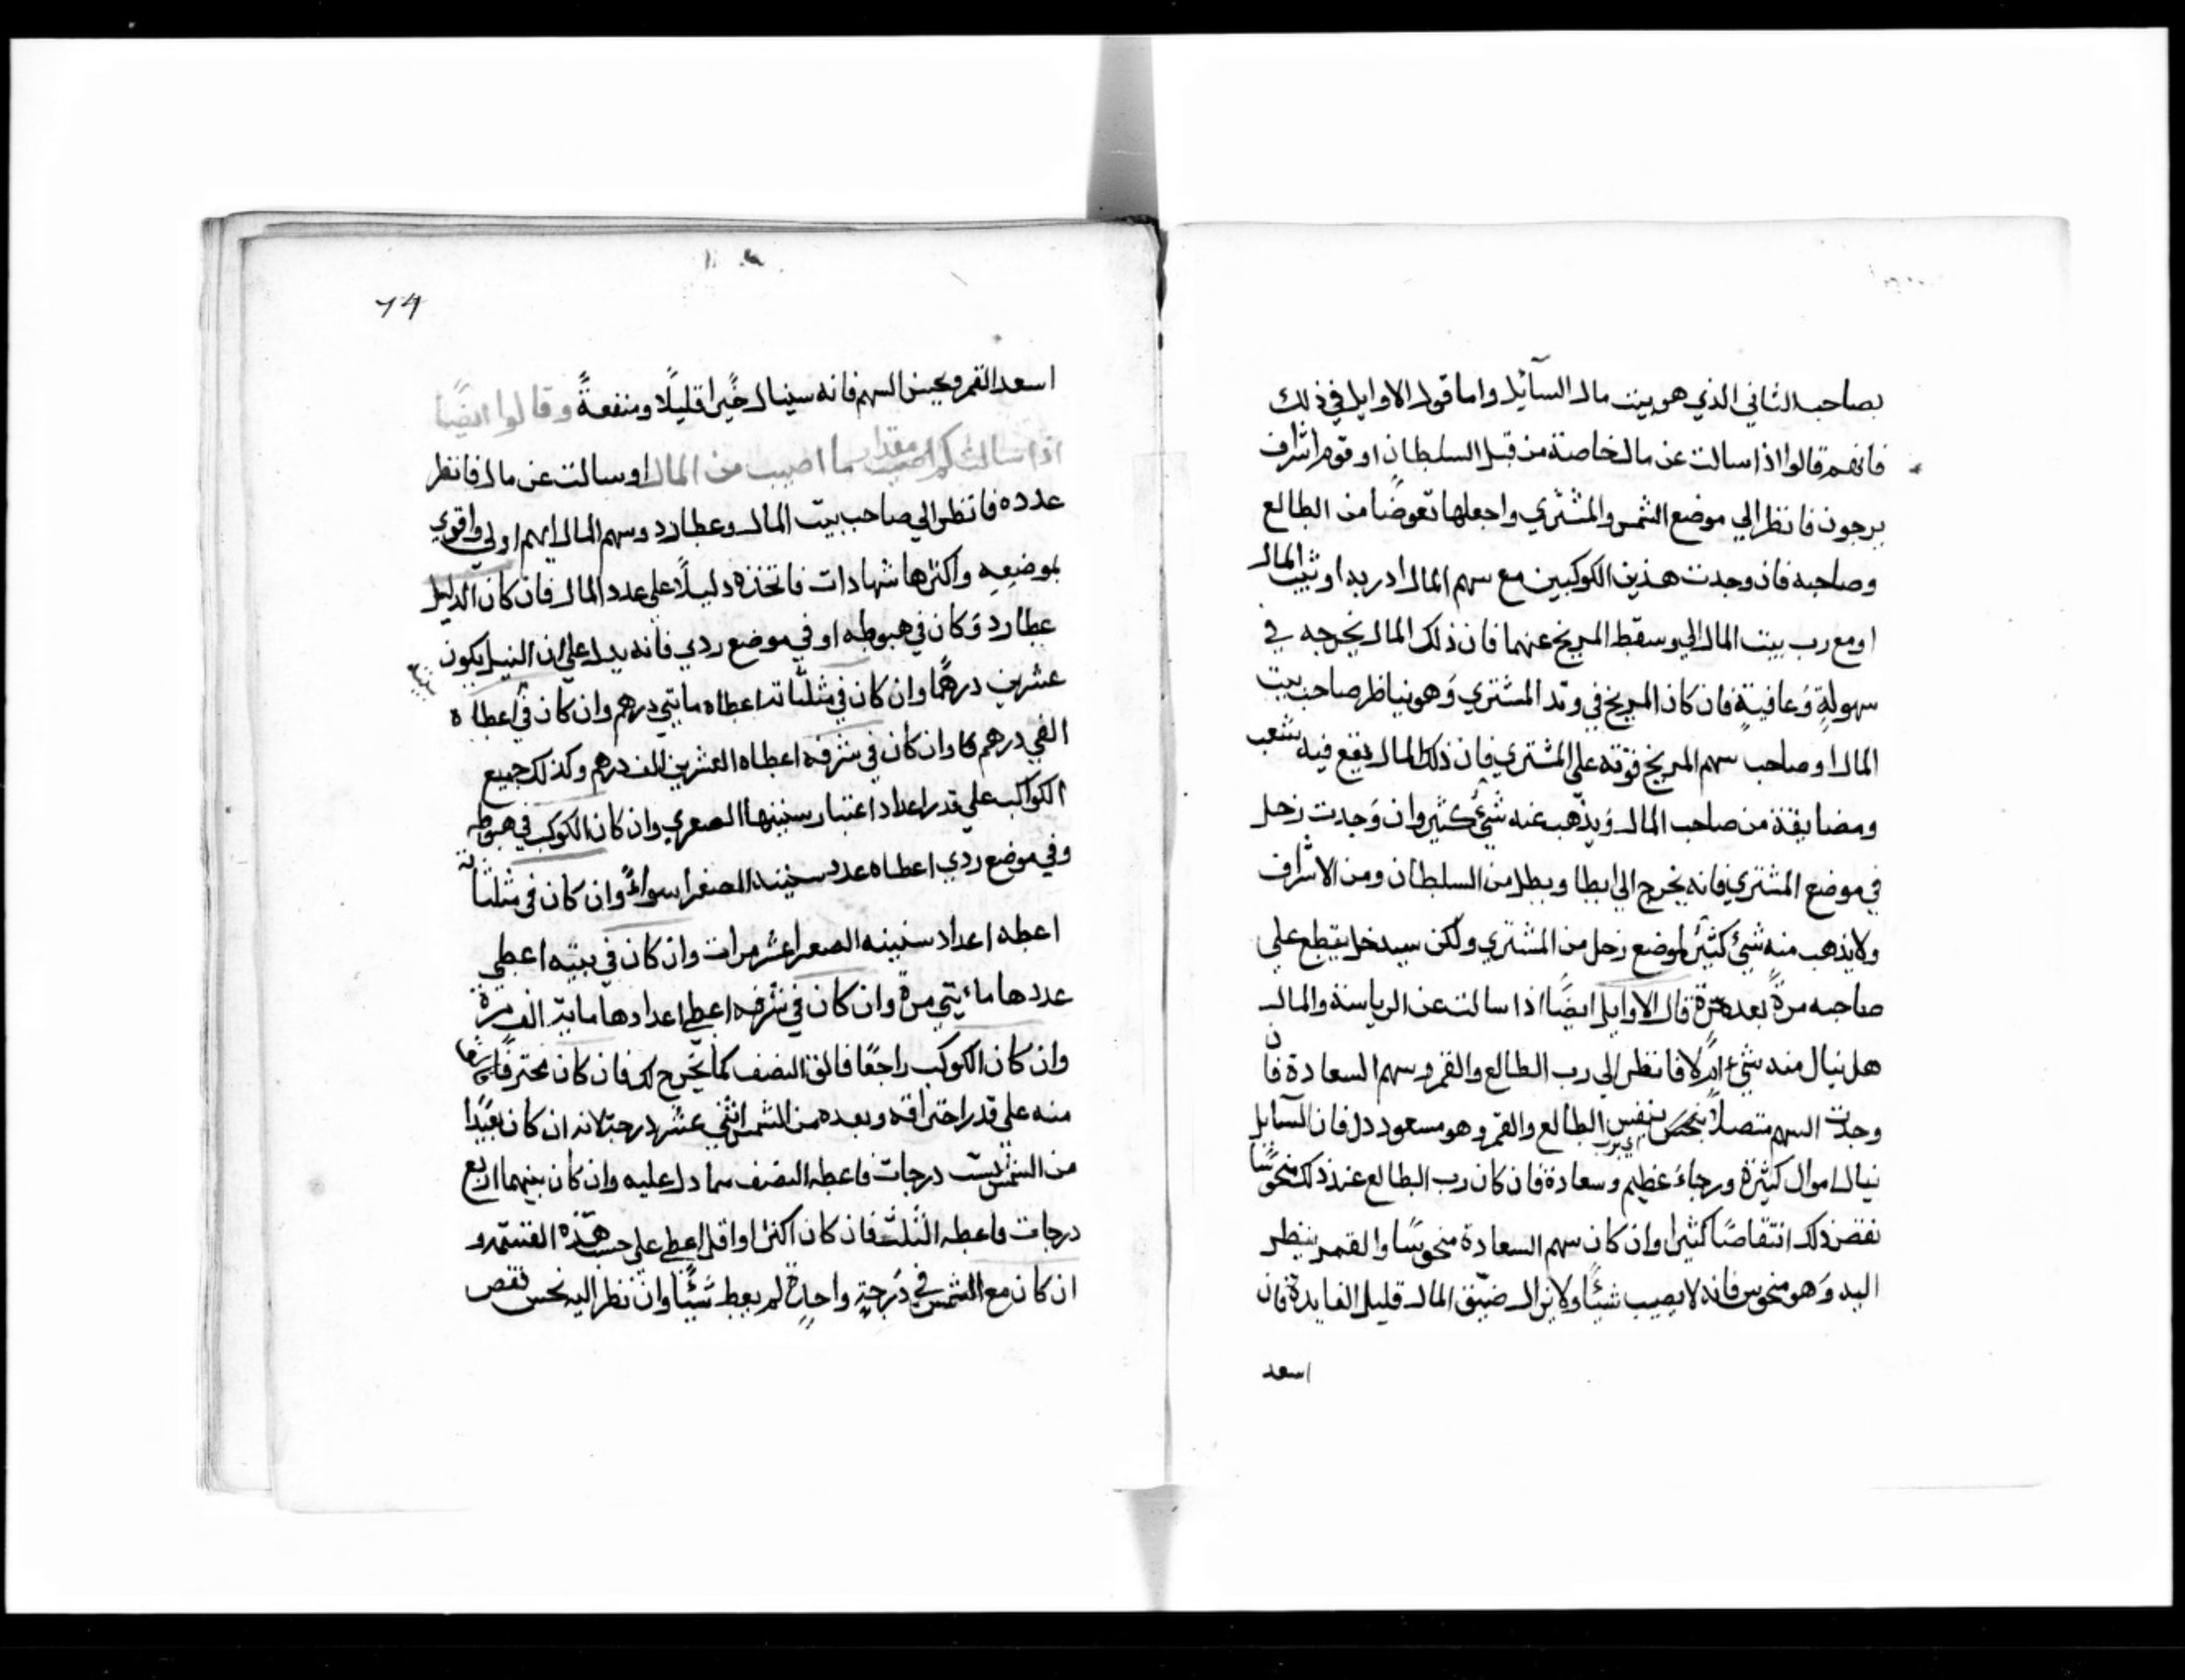 بصاحب الثاني الذي هو بيت مال السآئل واما قول الاوايل في ذلك
فانهم قالوا اذا سالت عن مال خاصة من قبل السلطان او قوم اشراف
يرجون فانظر الي موضع الشمس والمشتري واجعلها تعوضا من الطالع
وصاحبه فان وجدت هذين الكوكبين مع سهم المال او ربه او بيت المال
او مع رب بيت المال الي وسقط المريخ عنهما فان ذلك المال يخرجه في
سهولةٍ وعافيةٍ فان كان المريخ في وتد المشتري وهو يناظر صاحب بيت
المال او صاحب سهم المريخ قوته علي المشتري فان ذلك المال يقع فيه شعب
ومضايقة من صاحب المال ويذهب عنه شئ كثير وان وجدت زحل
في موضع المشتري فانه يخرج الي ابطا وبطل من السلطان ومن الاشراف
ولا يذهب منه شئ كثير لموضع زحل من المشتري ولكن سيدخل يقطع علي
صاحبه مرةً بعد مرة قال الاوايل ايضًا اذا سالت عن الرياسة والمال
هل ينال منه شئ ام لا فانظر الي رب الطالع والقمر وسهم السعادة فان
وجدت السهم متصلاً بنفس الطالع والقمر وهو مسعود دل فان السآيل
ينال اموال كثيرة ورجاء عظيم وسعادة فان كان رب الطالع عند ذلك منحوسًا
نقض ذلك انتقاصًا كثيرا وان كان سهم السعادة منحوسًا والقمر ينظر
اليه وهو منحوس فانه لا يصيب شيئًا ولا يزال ضيّق المال قليل الفايدة فان
اسعد
٦٩
اسعد القمر ويحسن السهم فانه سينال خيرا قليلًا ومنفعةً وقالوا ايضًا
اذا سالت كم اصيب مقدار ما اصيب من المال او سالت عن مال فانظر
عدده فانظر الي صاحب بيت المال وعطارد وسهم المال ايهم اولي واقوي
بموضعه واكثرها شهادات فاتخذه دليلًا علي عدد المال فان كان الدليل
عطارد وكان في هبوطه او في موضع ردي فانه يدل علي ان النيل يكون
عشرين درهمًا وان كان في مثلثاته اعطاه مايتي درهم وان كان في بيته اعطاه
الفي درهم وان كان في شرفه اعطاه العشرين الف درهم وكذلك جميع
الكواكب علي قدر اعداد اعتبار سنينها الصغري وان كان الكوكب في هبوطه
وفي موضع ردي اعطاه عدد سنينه الصغرا سواءً وان كان في مثلثاته
اعطه اعداد سنينه الصغرا عشر مرات وان كان في بيته اعطي
عددها مايتي مرة وان كان في شرفه اعطي اعدادها ماية الف مرة
وان كان الكوكب راجعًا فالق النصف كما يخرج لك فان كان محترقًا
منه علي قدر احتراقه وبعده من الشمس اثني عشر درجة لانه ان كان بعيدًا
من الشمس ست درجات فاعطه النصف مما دل عليه وان كان بينهما اربع
درجات فاعطه الثلث فان كان اكثر او اقل اعطي علي حسب هذه القسمة و
ان كان مع الشمس في درجةٍ واحدةٍ لم يعط شيئًا وان نظر اليه نحس نقص